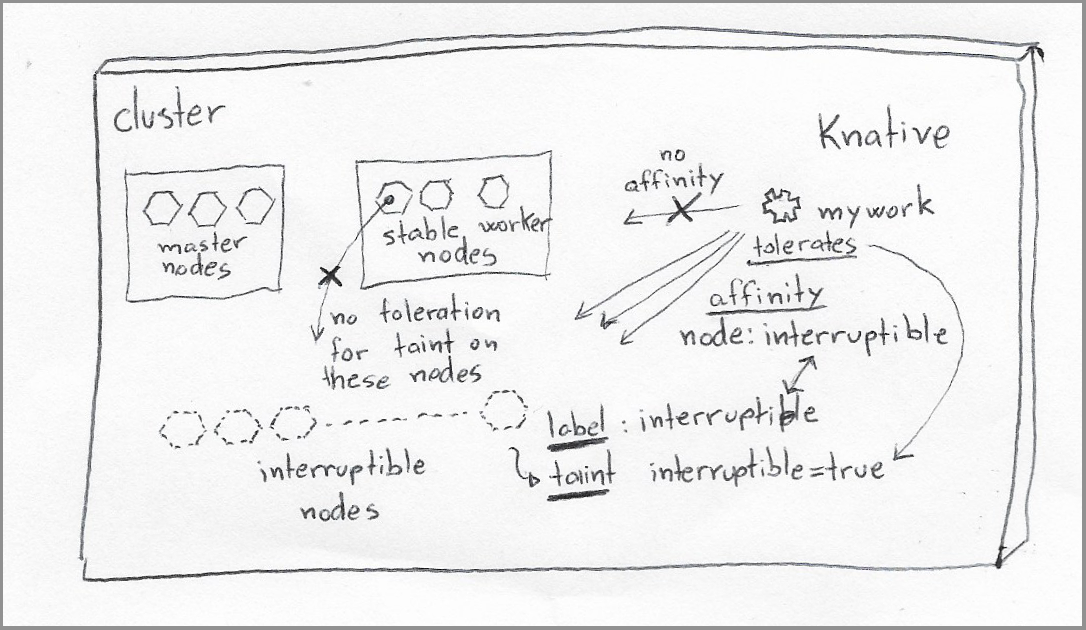 cluster
Knative
master
nodes
stable worker
nodes
no
affinity
mywork
tolerates
affinity
node: interruptible
no toleration
for taint on
these nodes
label : interruptible
taint interruptible=true
interruptible
nodes